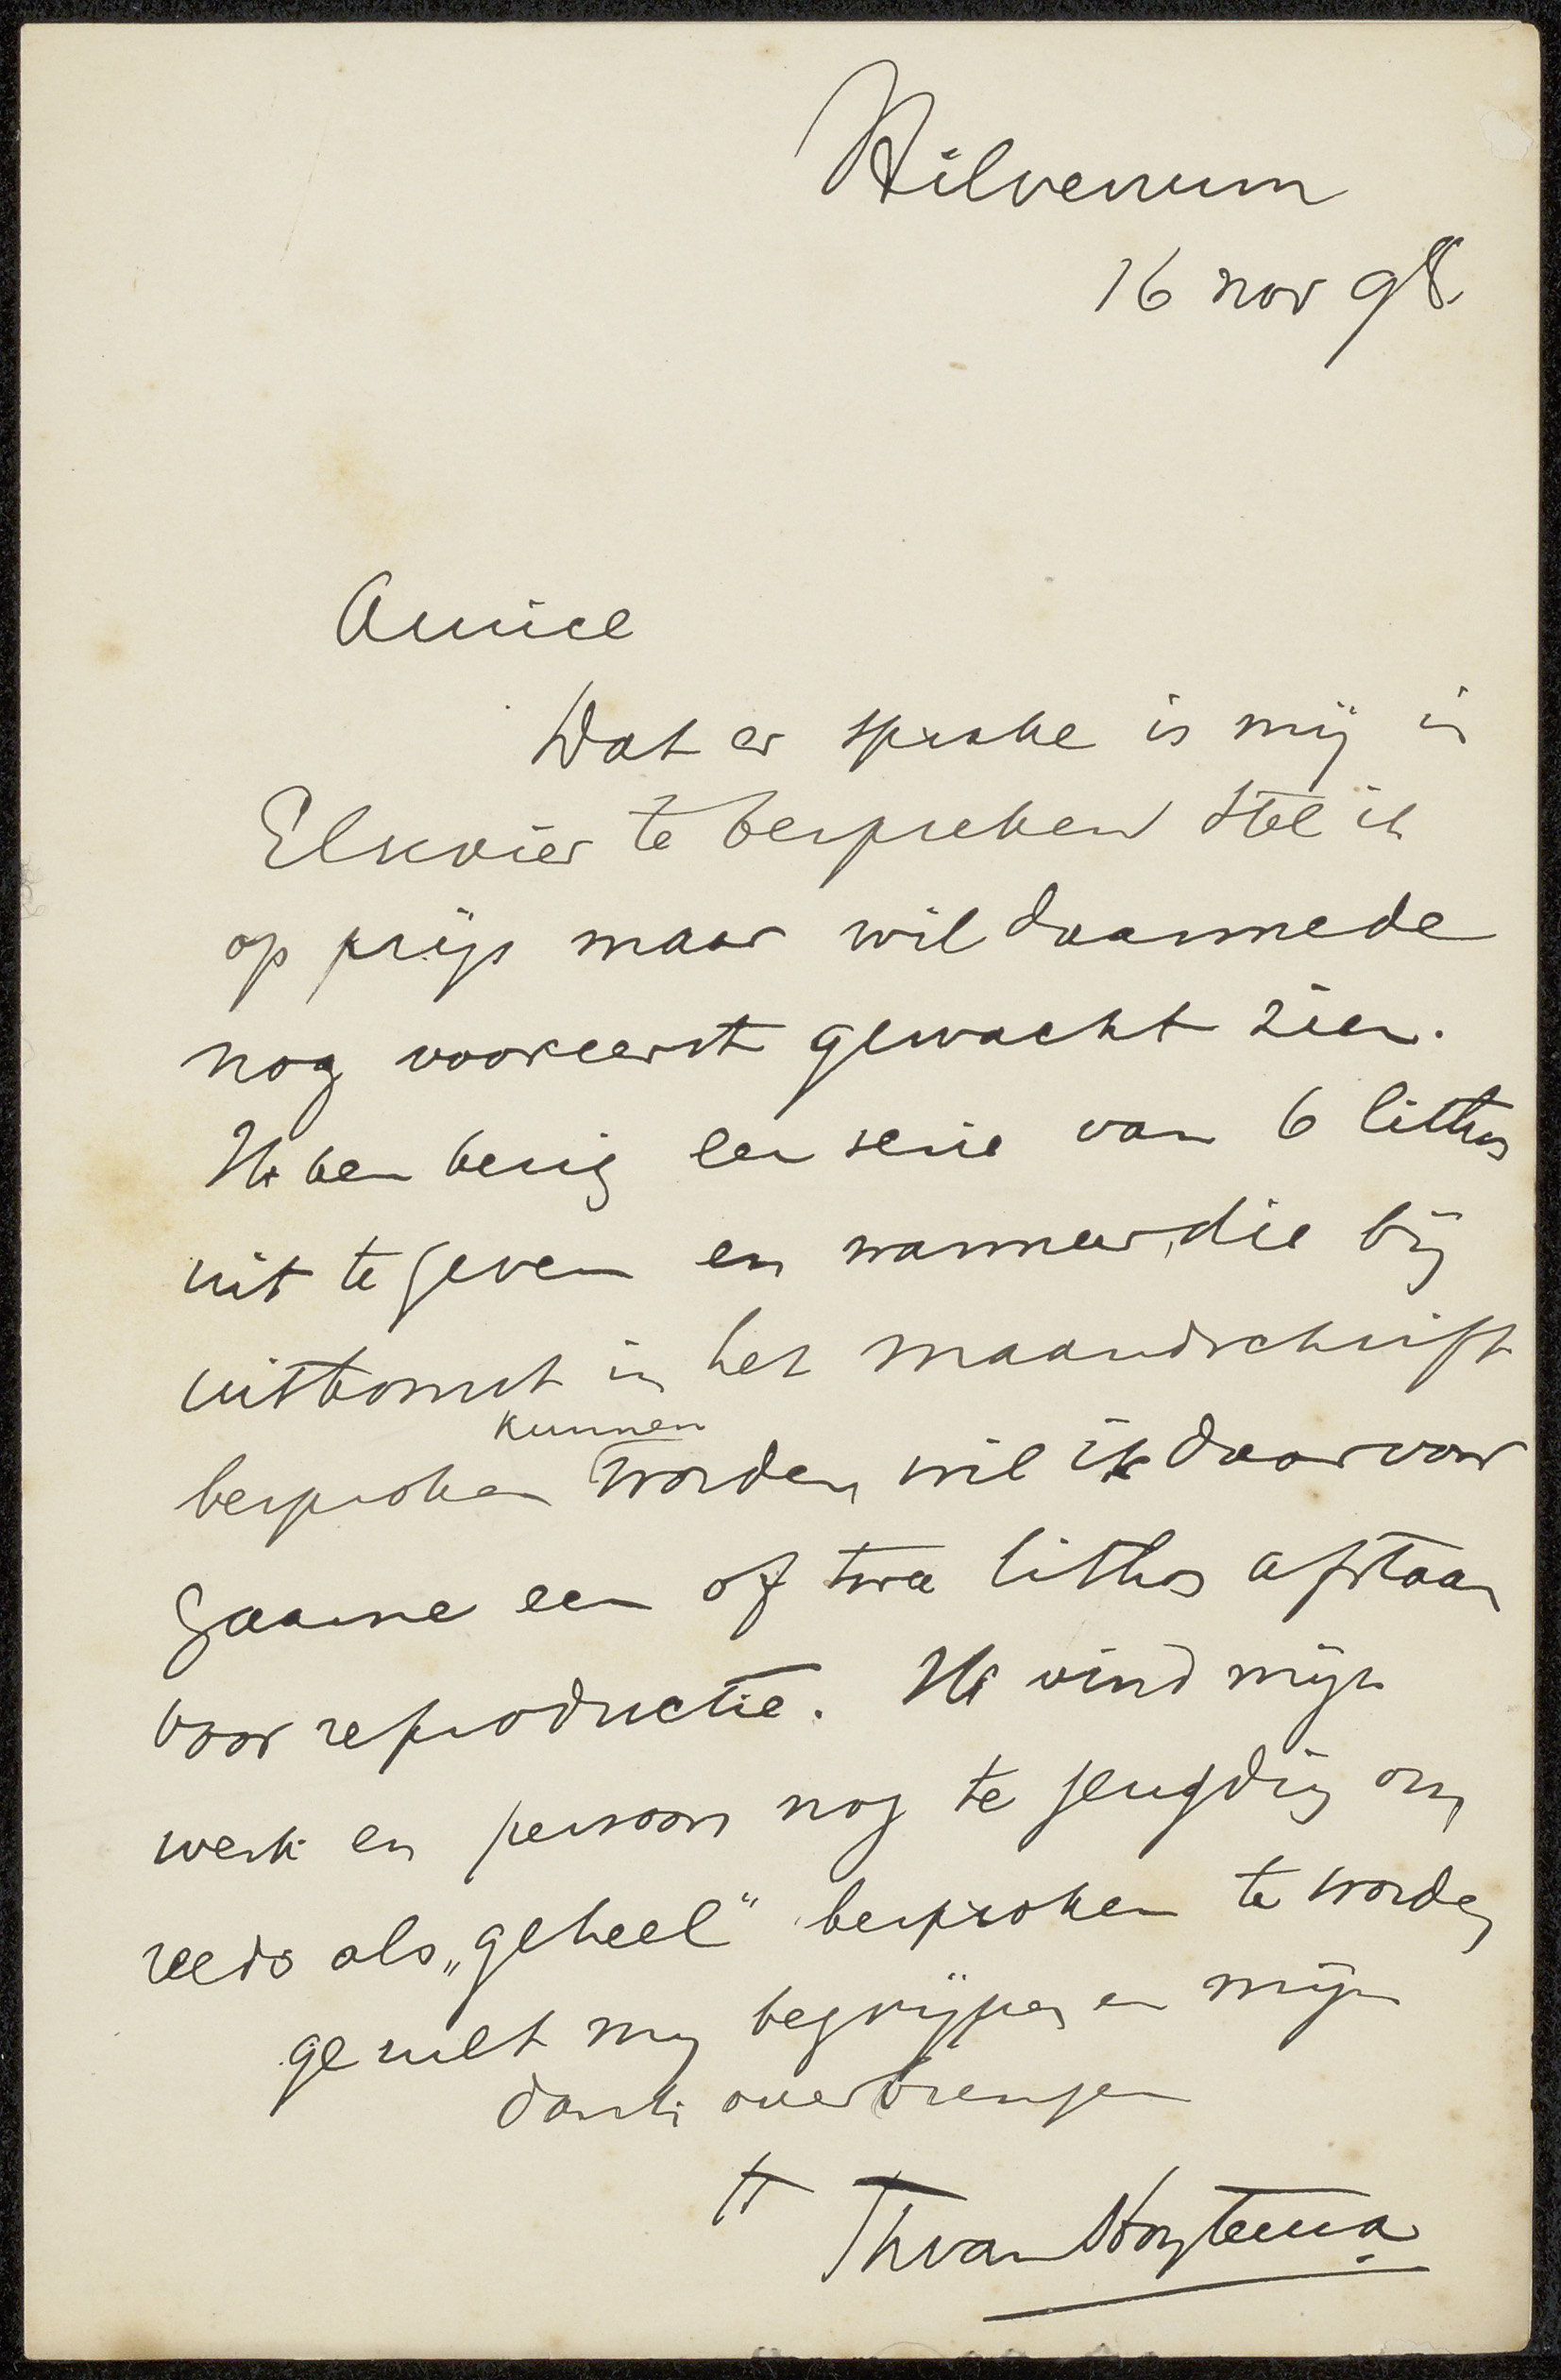 Hilversum
16 nov 98
Amice
Dat er sprake is mij in
Elsevier te bespreken stel ik
op prijs maar wil daarmede
nog vooreerst gewacht zien.
Ik ben bezig een serie van 6 lithos
uit te geven en wanneer die bij
uitkomst in het maandschrift
kunnen
besproken worden, wil ik daarvoor
gaarne een of twee lithos afstaan
voor reproductie. Ik vind mijn
werk en persoon nog te jeugdig om
reeds als „geheel" besproken te worden
ge zult mij begrijpen en mijn
dank overbrengen
tt
Th van Hoytema